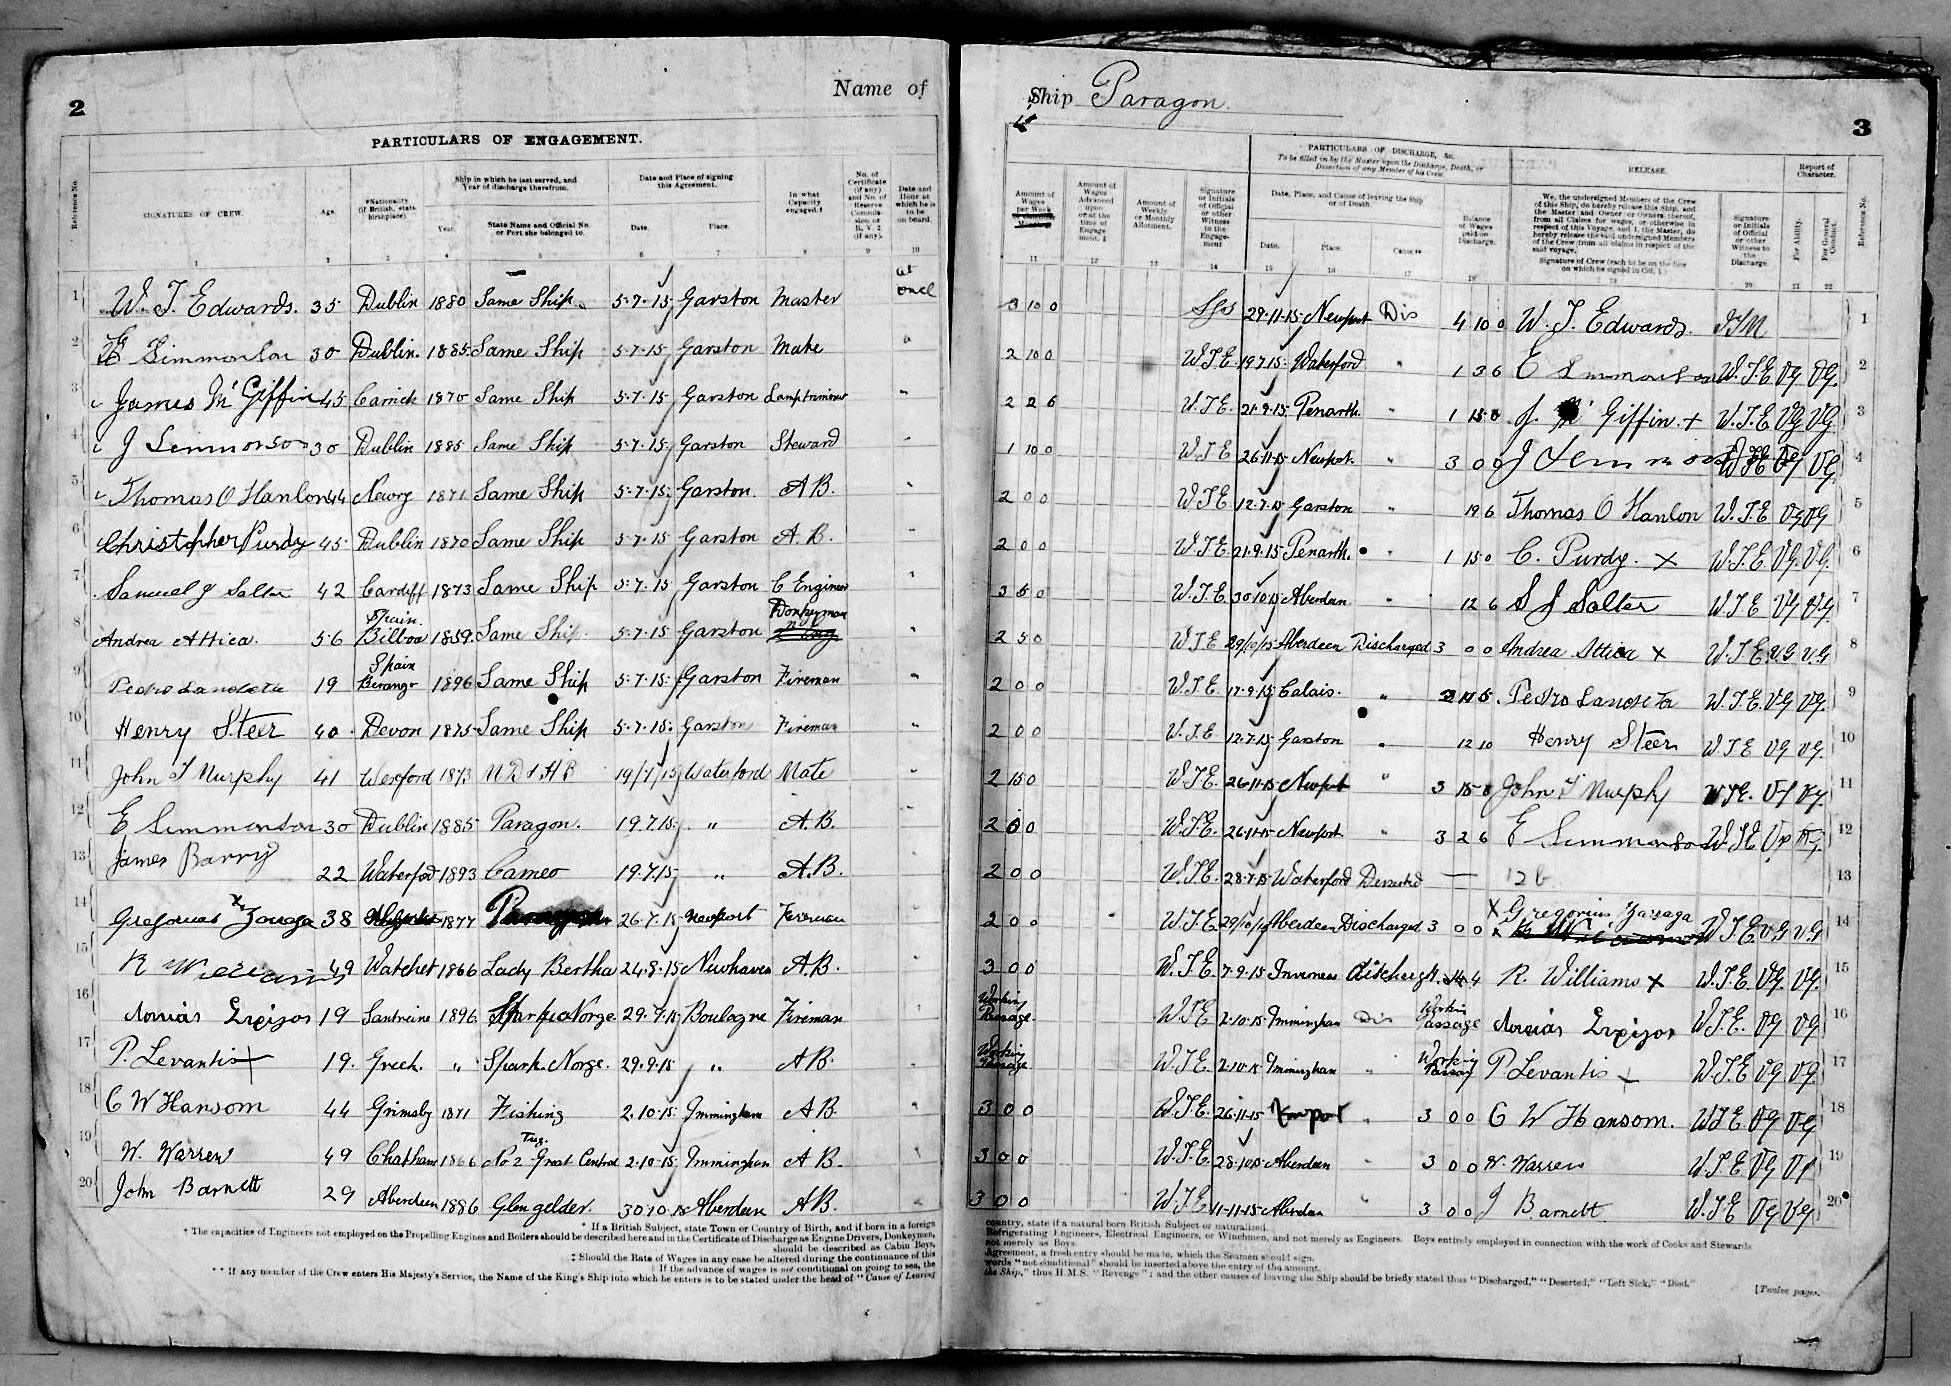 2
Name of
Ship Paragon.
3
PARTICULARS OF ENGAGEMENT.
PARTICULARS OF DISCHARGE, &c.
To be filled in by the Master upon the Discharge, Death, or
Desertion of any Member of his Crew
RELEASE.
Report of
Character.
Reference No.
SIGNATURES OF CREW.
Age.
*Nationality
(if British, state
birthplace).
Ship in which he last served, and
Year of discharge therefrom.
Year.
State Name and Official No.
or Port she belonged to.
Date and Place of signing
this Agreement.
Date.
Place.
In what
Capacity
engaged.†
No. of
Certificate
(if any)
and No. of
Reserve
Commis-
sion or
R. V. 2
(if any).
Date and
Hour at
which he is
to be
on board.
Amount of
Wages
per Week
Amount of
Wages
Advanced
upon
or at the
time of
Engage-
ment. ‡
Amount of
Weekly
or Monthly
Allotment.
Signature
or Initials
of Official
or other
Witness
to the
Engage-
ment
Date, Place, and Cause of leaving the Ship
or of Death
Date.
Place.
Cause.**
Balance
of Wages
paid on
Discharge.
We, the undersigned Members of the Crew
of this Ship, do hereby release this Ship, and
the Master and Owner or Owners thereof,
from all Claims for wages, or otherwise in
respect of this Voyage, and I, the Master, do
hereby release the said undersigned Members
of the Crew from all claims in respect of the
said voyage.
Signature of Crew (each to be on the line
on which he signed in Col. 1.)
Signature
or Initials
of Official
or other
Witness to
the
Discharge.
For Ability.
For General
Conduct.
Reference No.
1 2 3 4 5 6 7 8 9 10 11 12 13 14 15 16 17 18 19 20 21 22
1 W. J. Edwards. 35 Dublin 1880 Same Ship 5.7.15 Garston Master at once 3 10 0 29.11.15 Newport Dis 4 10 0 W. J. Edwards. 1
2 E Simmonson 30 Dublin. 1885 Same Ship 5.7.15 Garston Mate " 2 10 0 W.J.E. 19.7.15 Waterford " 1 3 6 E Simmonson W.J.E VG VG. 2
3 James McGiffin 45 Carrick 1870 Same Ship 5.7.15 Garston Lamptrimmer " 2 2 6 W.J.E 21.9.15 Penarth " 1 15 0 J. Mc Giffin + W.J.E VG VG 3
4 J Simmonson 30 Dublin 1885 Same Ship 5.7.15 Garston Steward " 1 10 0 W.J.E 26.11.15 Newport. " 3 0 0 J Simmonson W.J.E VG VG. 4
5 Thomas O Hanlon 44 Newry 1871 Same Ship 5.7.15 Garston. A.B. " 2 0 0 W.J.E 12.7.15 Garston " 19 6 Thomas O Hanlon W.J.E VG VG 5
6 Christopher Purdy 45 Dublin 1870 Same Ship 5.7.15 Garston A.B. " 2 0 0 W.J.E. 21.9.15 Penarth. " 1 15 0 C. Purdy. X W.J.E. VG. VG. 6
7 Samuel J Salter 42 Cardiff 1873 Same Ship 5.7.15 Garston C Engineer " W.J.E. 30.10.15 Aberdeen " 12 6 S J Salter W.J.E VG VG. 7
8 Andrea Attica. 56 Spain. Bilboa 1859. Same Ship 5.7.15 Garston Donkeyman 2 5 0 W.J.E 29/10/15 Aberdeen Discharged 3 0 0 Andrea Attica X W.J.E V.G V.G 8
9 Pedro Landeta 19 Spain Berango 1896 Same Ship 5.7.15 Garston Fireman " 2 0 0 W.J.E. 17.9.15 Calais. " Pedro Landeta W.J.E. VG VG. 9
10 Henry Steer 40 Devon 1875 Same Ship 5.7.15. Garston Fireman " 2 0 0 W.J.E 12.7.15 Garston " 12 10 Henry Steer W.J.E VG VG. 10
11 John J Murphy 41 Wexford 1873 19/7/15 Waterford Mate " 2 15 0 W.J.E. 26.11.15 Newport " 3 15 0 John J Murphy W.J.E. VG VG. 11
12 E Simmonson 30 Dublin 1885 Paragon. 19.7.15 " A.B. " 2 0 0 W.J.E. 26.11.15 Newport " 3 2 6 E Simmonson W.J.E VG VG. 12
13 James Barry 22 Waterford 1893 Cameo 19.7.15 " A.B. " 2 0 0 W.J.E. 28.7.15 Waterford Deserted — 13
14 Gregorius X Zarraga 38 1877 26.7.15 Newport Fireman " 2 0 0 W.J.E 29/10/15 Aberdeen Discharged 3 0 0 X Gregorius Zarraga W.J.E. VG VG 14
15 R Williams 49 Watchet 1866 Lady Bertha 24.8.15 Newhaven A.B. " 3 0 0 W.J.E. 7.9.15 Inverness R. Williams X W.J.E. VG. VG. 15
16 19 1896 Norge. Boulogne Fireman Working Passage. W.J.E 2.10.15 Immingham Dis Working Passage W.J.E. VG VG 16
17 P. Levantis + 19. Greek. " Spark. Norge. 29.9.15 " A.B. Working Passage W.J.E. 2.10.15 Immingham " Working Passage P. Levantis + W.J.E VG VG. 17
18 C W Hansom 44 Grimsby 1871 Fishing 2.10.15 Immingham A.B. " 3 0 0 W.J.E. 26.11.15 Newport " 3 0 0 C W Hansom. W.J.E VG VG 18
19 W. Warren 49 Chatham 1866 Tug. No 2 Great Central 2.10.15 Immingham A.B. " 3 0 0 W.J.E. 28.10.15 Aberdeen 3 0 0 W. Warren W.J.E VG VG 19
20 John Barnett 29 Aberdeen 1886 Glengelder. 30.10.15 Aberdeen A.B. " 3 0 0 W.J.E 11.11.15 Aberdeen " 3 0 0 J Barnett. W.J.E VG VG 20
* If a British Subject, state Town or Country of Birth, and if born in a foreign country, state if a natural born British Subject or naturalized.
† The capacities of Engineers not employed on the Propelling Engines and Boilers should be described here and in the Certificate of Discharge as Engine Drivers, Donkeymen, Refrigerating Engineers, Electrical Engineers, or Winchmen, and not merely as Engineers. Boys entirely employed in connection with the work of Cooks and Stewards
should be described as Cabin Boys, not merely as Boys.
‡ Should the Rate of Wages in any case be altered during the continuance of this Agreement, a fresh entry should be made, which the Seamen should sign.
‖ If the advance of wages is not conditional on going to sea, the words "not conditional" should be inserted above the entry of the amount.
** If any member of the Crew enters His Majesty's Service, the Name of the King's Ship into which he enters is to be stated under the head of "Cause of Leaving the Ship," thus H.M.S. "Revenge"; and the other causes of leaving the Ship should be briefly stated thus "Discharged," "Deserted," "Left Sick," "Died."
[Twelve pages.